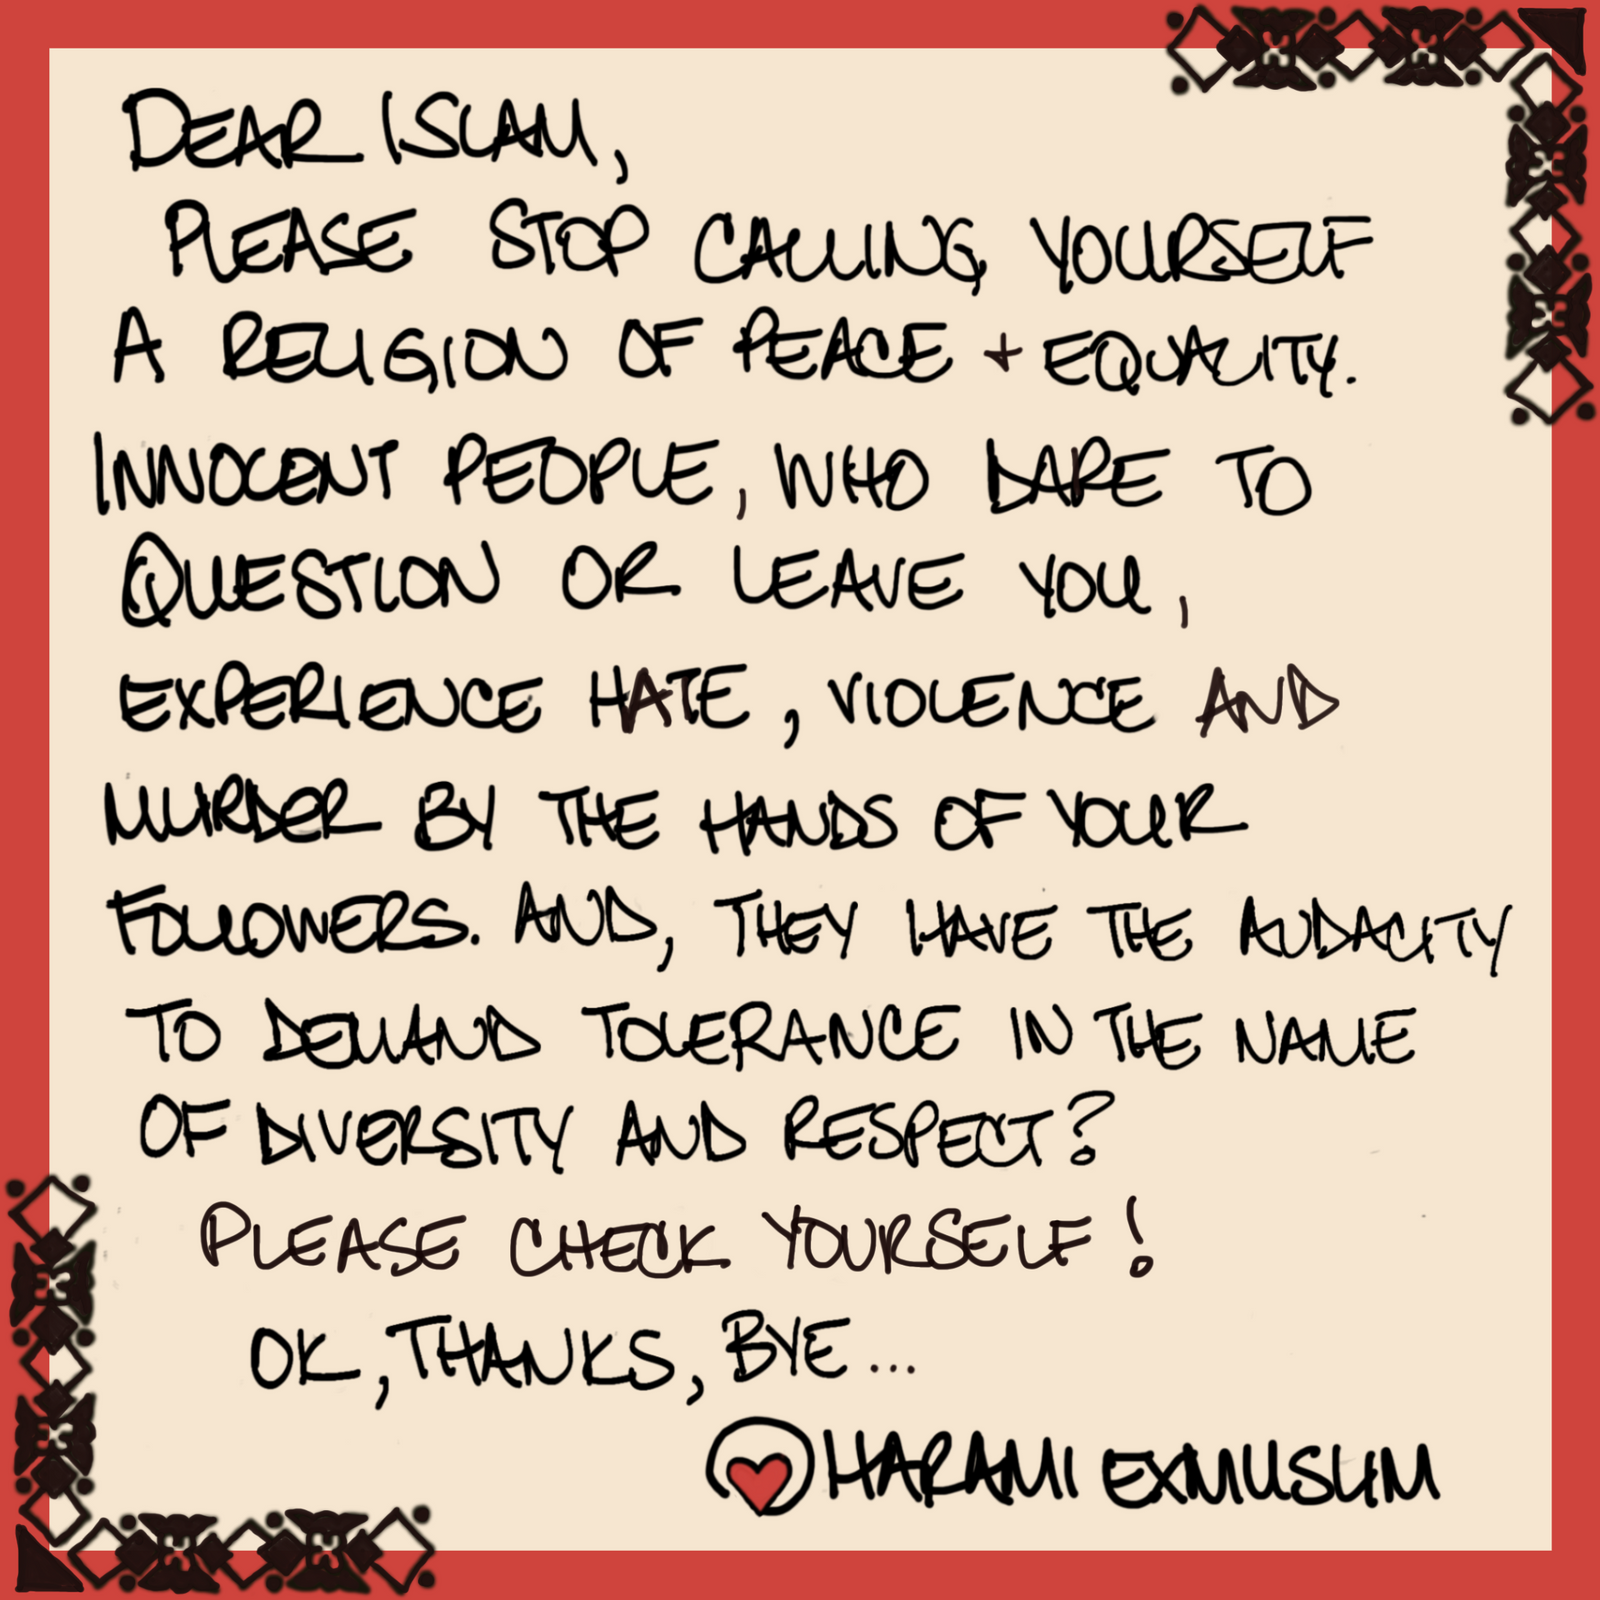 DEAR ISLAM,
PLEASE STOP CALLING YOURSELF
A RELIGION OF PEACE + EQUALITY.
INNOCENT PEOPLE, WHO DARE TO
QUESTION OR LEAVE YOU,
EXPERIENCE HATE, VIOLENCE AND
MURDER BY THE HANDS OF YOUR
FOLLOWERS. AND, THEY HAVE THE AUDACITY
TO DEMAND TOLERANCE IN THE NAME
OF DIVERSITY AND RESPECT?
PLEASE CHECK YOURSELF!
OK, THANKS, BYE...
HARAMI EXMUSLIM